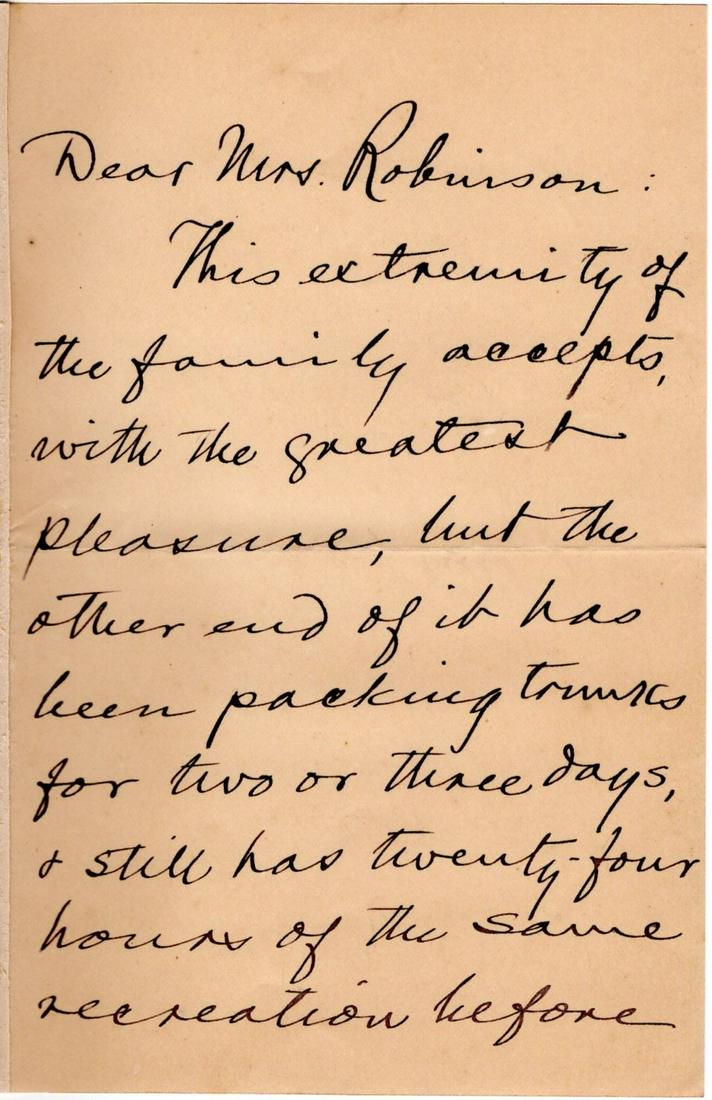 Dear Mrs. Robinson:
This extremity of
the family accepts,
with the greatest
pleasure, but the
other end of it has
been packing trunks
for two or three days,
& still has twenty-four
hours of the same
recreation before